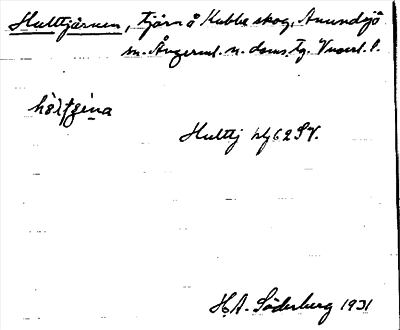 Hulttjärnen, tjärn å Kubbe skog, Anundsjö
sn. Ångerml. n. doms. tg. Vnorrl. l.
Hulttj hlj 62 SV.
H.A. Söderberg 1931